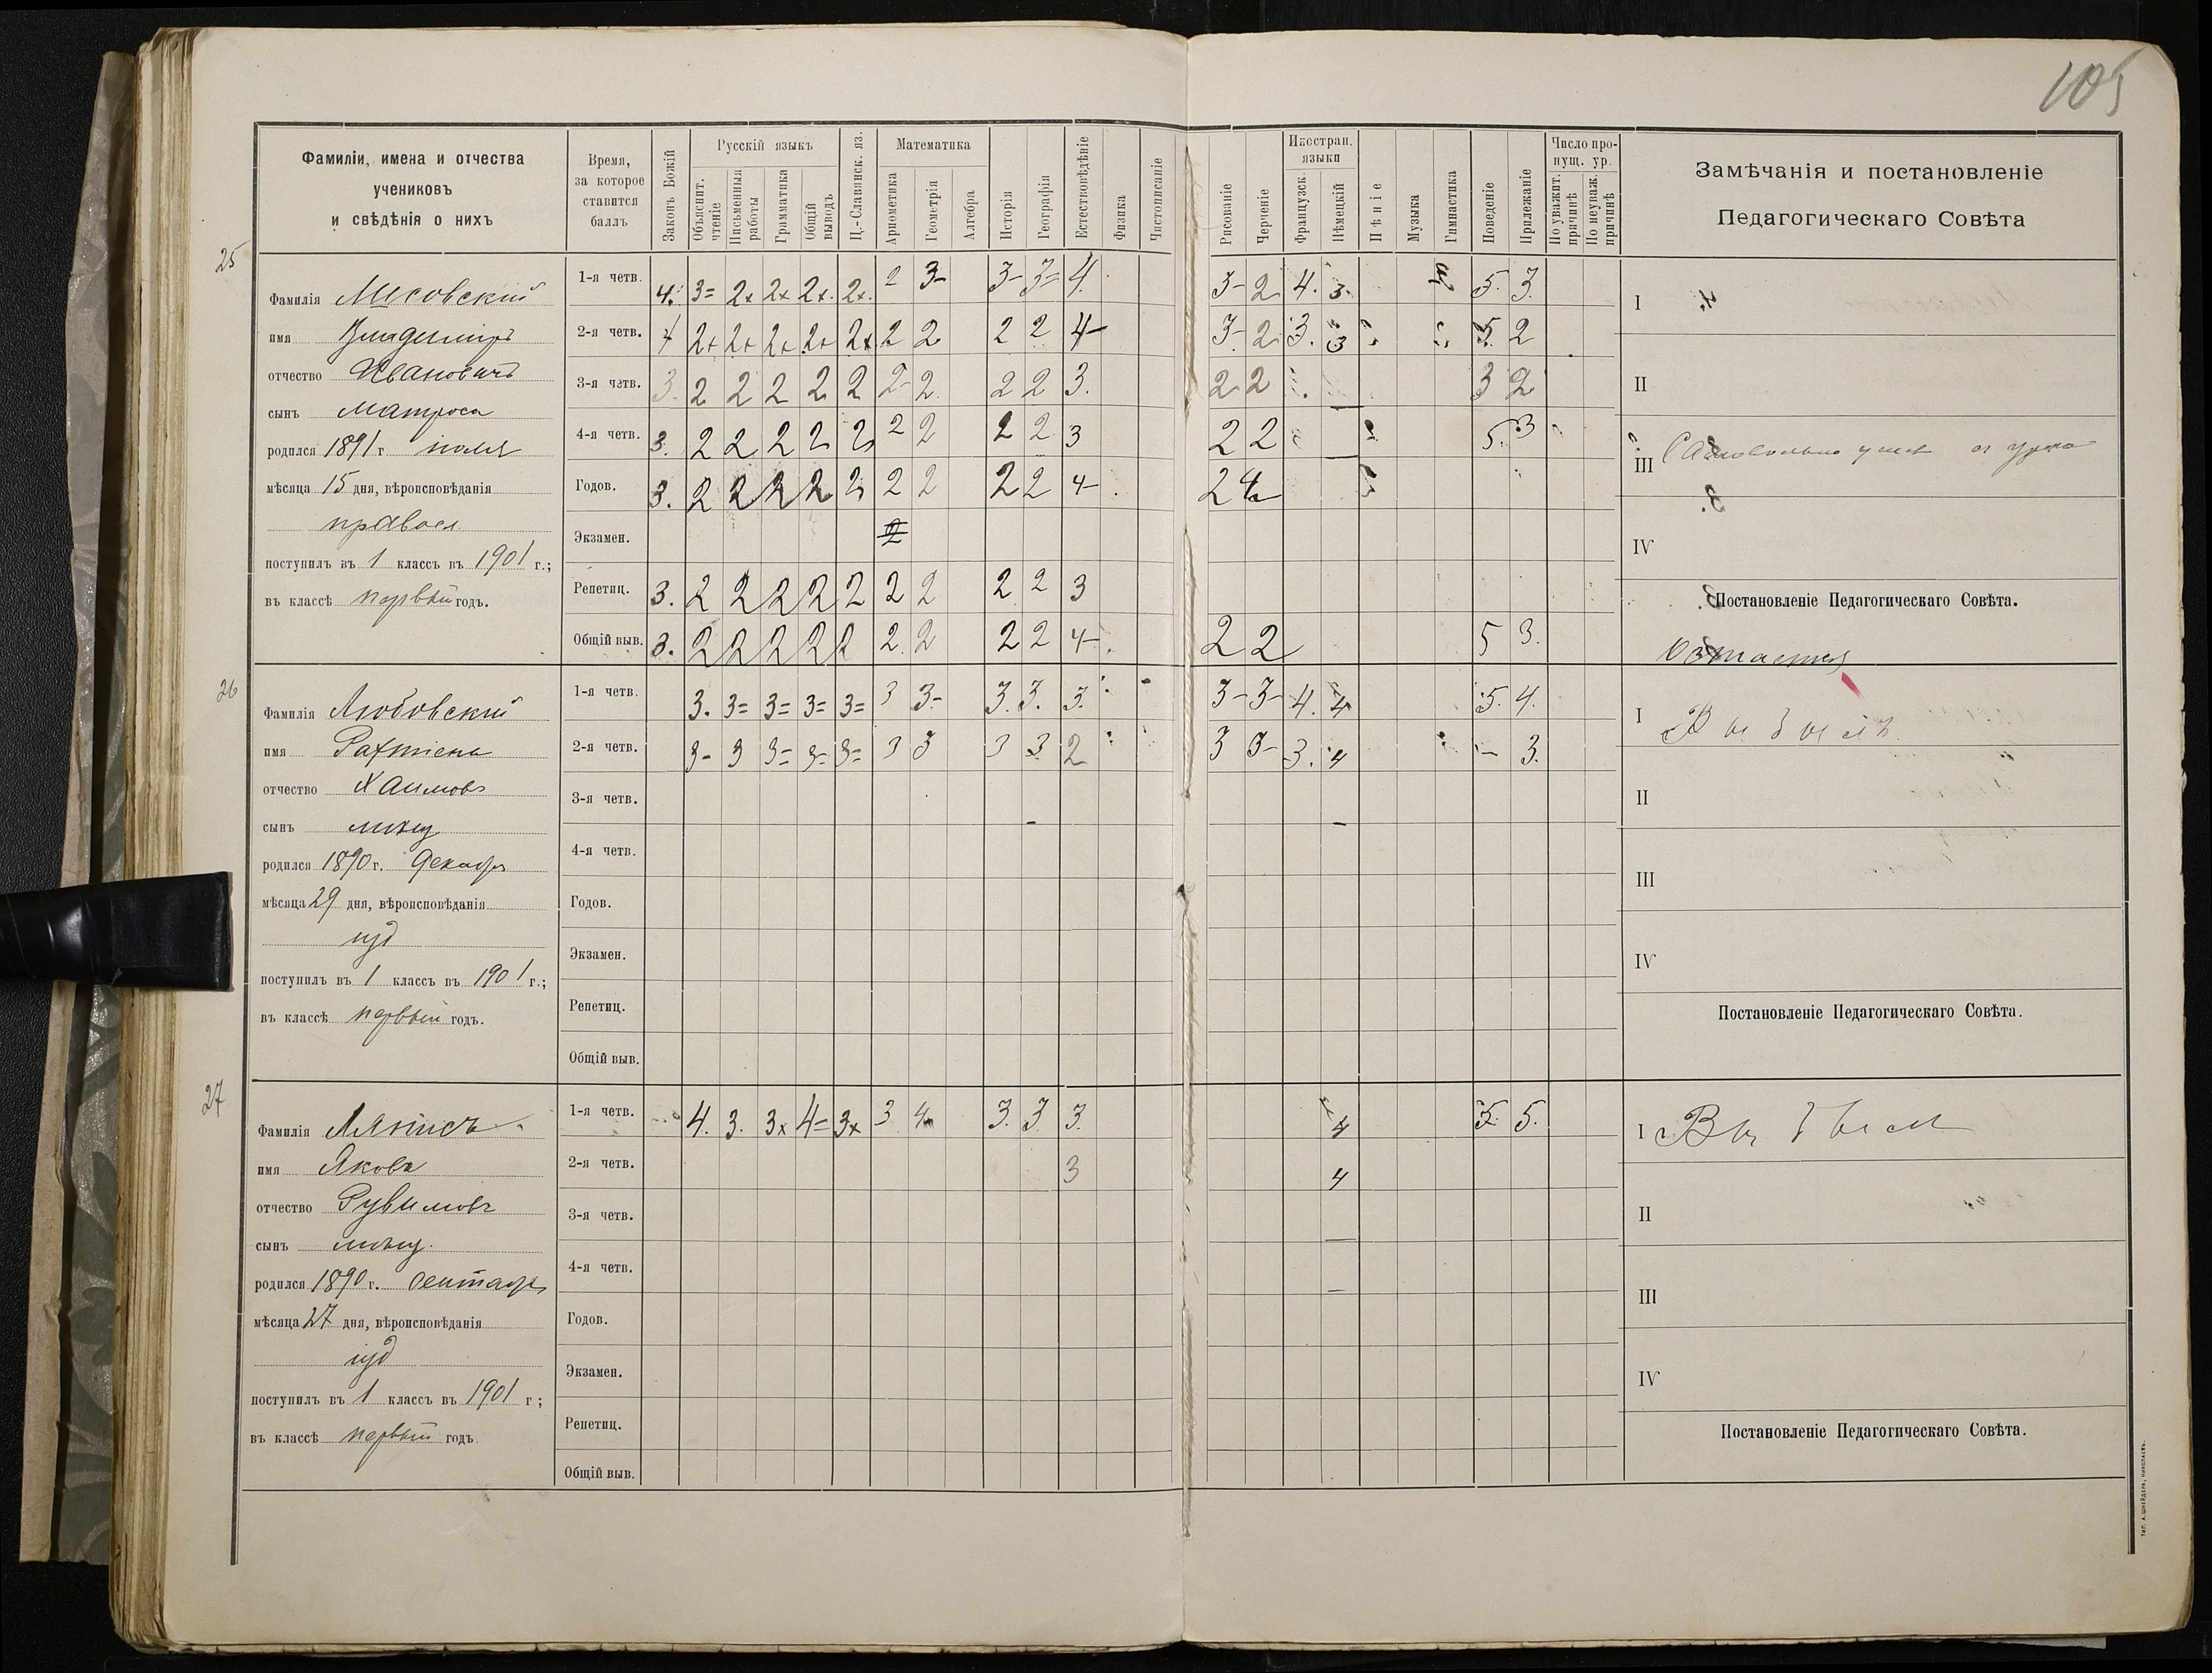 105
Фамиліи, имена и отчества
учениковъ
и свѣдѣнія о нихъ
Время,
за которое
ставится
баллъ
Законъ Божій
Русскій языкъ
Объяснит.
чтеніе
Письменныя
работы
Грамматика
Общій
выводъ
Ц.-Славянск. яз.
Математика
Ариѳметика
Геометрія
Алгебра
Исторія
Географія
Естествовѣдѣніе
Физика
Чистописаніе
Рисованіе
Черченіе
Иностран.
языки
Французск.
Нѣмецкій
Пѣніе
Музыка
Гимнастика
Поведеніе
Прилежаніе
Число про-
пущ. ур.
По уважит.
причинѣ
По неуваж.
причинѣ
Замѣчанія и постановленіе
Педагогическаго Совѣта
25
Фамилія
имя Владиміръ
отчество Ивановичъ
сынъ матроса
родился 1891 г
мѣсяца 15 дня, вѣроисповѣданія
правосл
поступилъ въ 1 классъ въ 1901 г.;
въ классѣ первый годъ.
1-я четв. 4. 3= 2+ 2+ 2+ 2+ 2 3- 3- 3= 4 3- 2 4. 3. 5. 3.
2-я четв. 4 2+ 2+ 2+ 2+ 2+ 2 2 2 2 4- 3- 2 3. 3 5. 2
3-я четв. 3. 2 2 2 2 2 2 2 2 2 3. 2 2 3 2
4-я четв. 3. 2 2 2 2 2 2 2 2 2 3 2 2 5. 3
Годов. 3. 2 2 2 2 2 2 2 2 2 4- 2
Экзамен. 2
Репетиц. 3. 2 2 2 2 2 2 2 2 2 3
Общій выв. 3. 2 2 2 2 2 2 2 2 2 4- 2 2 5 3.
I
II
III Самовольно
IV
Постановленіе Педагогическаго Совѣта.
Остается
26
Фамилія Любовскій
имя
отчество Хаимовъ
сынъ мѣщ
родился 1890 г. Декабр
мѣсяца 29 дня, вѣроисповѣданія
іуд
поступилъ въ 1 классъ въ 1901 г.;
въ классѣ первый годъ.
1-я четв. 3. 3= 3= 3= 3= 3 3- 3. 3. 3. 3- 3- 4. 4 5. 4.
2-я четв. 3- 3 3= 3= 3= 3 3 3 3 2 3 3- 3. 4 - 3.
3-я четв.
4-я четв.
Годов.
Экзамен.
Репетиц.
Общій выв.
I Выбылъ
II
III
IV
Постановленіе Педагогическаго Совѣта.
27
Фамилія
имя Яковъ
отчество Рувимовъ
сынъ мѣщ.
родился 1890 г. сентябр
мѣсяца 27 дня, вѣроисповѣданія
іуд
поступилъ въ 1 классъ въ 1901 г;
въ классѣ первый годъ
1-я четв. 4. 3. 3+ 4= 3+ 3 4 3. 3 3. 4 5. 5.
2-я четв. 3 4
3-я четв.
4-я четв.
Годов.
Экзамен.
Репетиц.
Общій выв.
I Выбылъ
II
III
IV
Постановленіе Педагогическаго Совѣта.
ТИП. А. ШНЕЙДЕРА, НИКОЛАЕВЪ.